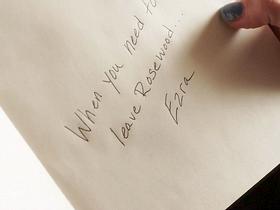 When you need to
leave Rosewood...
Ezra